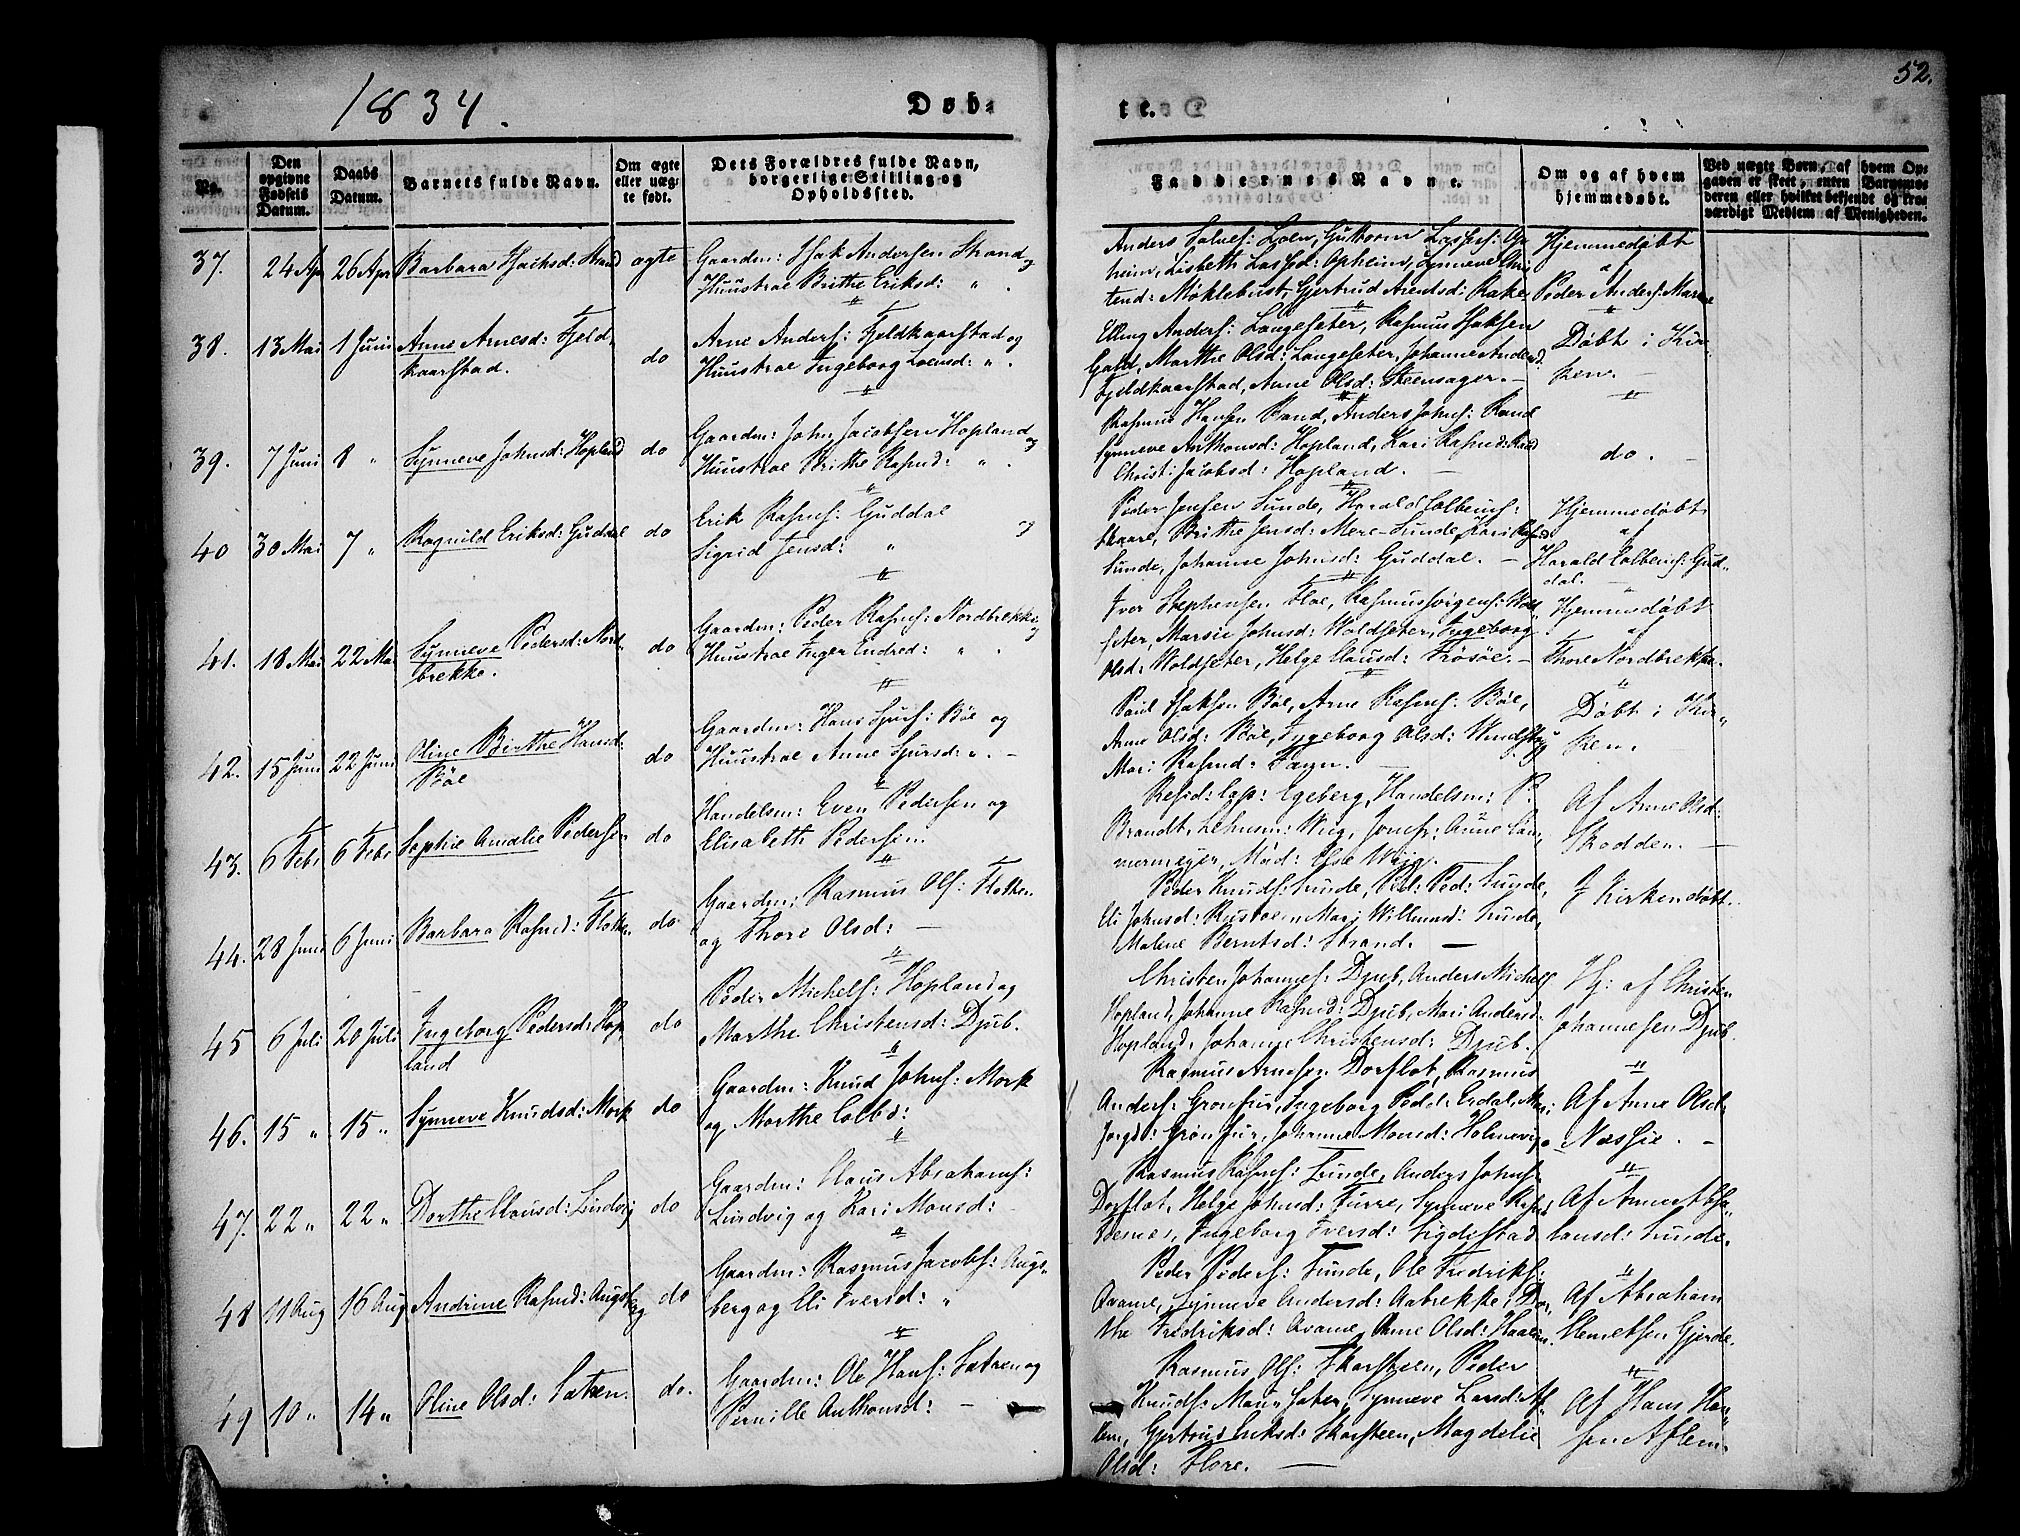 1834.
Døb-
te.
52.
No.
Den opgivne Fødsels Datum.
Daabs Datum.
Barnets fulde Navn.
Om ægte eller uægte født.
Dets Forældres fulde Navn, borgerlige Stilling og Opholdssted.
Faddernes Navne.
Om og af hvem hjemmedøbt.
Ved uægte Børn, af hvem Opgaven er skeet, enten Barnemoderen eller hvilket bekjendt og troværdigt Medlem af Menigheden.
37. 24 Apr 26 Apr Barbara Isachsd: Strand ægte Gaardm: Isak Andersen Strand og
Huustroe Brithe Eriksd: „ .
Anders Guttorm Lassesf: Op
heim, Lisbeth Lassed: Opheim, Synneve Chri
tend: Møklebust, Gjertrud Arentsd: Rake
Hjemmedøbt
af
Peder Anders: 
38. 13 Mai 1 Juni Anne Arnesd: Fjeld
kaarstad. do
Arne Andersf: Fjeldkaarstad og
Huustroe Ingeborg „ .
Elling Andersf: Langeseter, Rasmus Isaksen
Marthe Olsd: Langeseter, Johanne Andersd:
Fjeldkaarstad, Anne Olsd: Steensager. –
Døbt i Kir„
ken. –
39. 7 Juni 8 „ Synneve Johnsd: Hopland do Gaardm: John Jacobsen Hopland og
Huustroe Brithe Rasmd: „ .
Rasmus Hansen Rand, Anders Johnsf: Rand
Synneve Anthonsd: Hopland, Kari Rasmd: Rand
Christ: Jacobsd: Hopland. –
do. –
40 30 Mai 7 „ Ragnild Eriksd: Guddal do Erik Rasmsf: Guddal og
Sigrid Jensd: „
Peder Jensen Sunde, Harald Colbensf:
Skaare, Brithe Jensd: Mere-Sunde, Kari
Sunde, Johanne Johnsd: Guddal. –
Hjemmedøbt
af
Harald Colbensf: Gud„
dal.
41. 18 Mai 22 Mai Synneve Pedersd: Nord„
brekke. do
Gaardm: Peder Rasmsf: Nordbrekke og
Huustroe Inger Endred: „ .
Iver Stephensen Floe, Rasmus Jørgensf: Wold
seter, Marie Johnsd: Woldseter, Ingeborg
Olsd: Woldseter, Helge Clausd: Frøsøe. –
Hjemmedøbt
af
Thore Nordbrekke.
42. 15 Juni 22 Juni Oline Birthe Hansd:
Böe do
Gaardm: Hans Sjursf: Böe og
Huustroe Anne Sjursd: „ . –
Poul Isaksen Böe, Arne Rasmsf: Böe,
Anne Olsd: Böe, Ingeborg Olsd:
Mari Rasmd: –
Døbt i Kir„
ken.
43. 6 Febr 6 Febr Sophie Amalie Pedersen do Handelsm: Even Pedersen og
Elisabeth Pedersen.
Resid: Cap: Egeberg, Handelsm: P.
Brandt, Lehnsm: Wiig, Jomfr: Anne Cam„
mermeyer, Mad: Else Wiig.
Af Anne Olsd:
Skodden. –
44. 28 Juni 6 Juni Barbara Rasmd: Flotten do Gaardm: Rasmus Olsf: Flotten
og Thore Olsd: –
Peder Knudsf: Sunde, Ped: Ped: Sunde,
Eli Johnsd: Mari Willumsd: Sunde,
Malene Berntsd: Strand. –
I Kirken døbt.
45 6 Juli 20 Juli Ingeborg Pedersd: Hop
land do
Peder Michelsf: Hopland og
Marthe Christensd: Djub.
Christen Johannesf: Djub, Anders Michelsf
Hopland, Johanne Rasmd: Djub, Mari Andersd:
Hopland, Johanne Christensd: Djub.
Hj: af Christen
Johannesen Djub.
46. 15 „ 15 „ Synneve Knudsd: Mork do Gaardm: Knud Johnsf: Mork
og Marthe Colbd:
Rasmus Arnesen Dorflot, Rasmus
Andersf: Grønfur, Ingeborg Pedd: Eidal, Mari
Jørgd: Grønfur, Johanne Monsd: Holmevig
Af Anne Olsd.
Næssie. –
47. 22 „ 22 „ Dorthe Clausd: Lindvig do Gaardm: Claus Abrahamsf:
Lindvig og Kari Monsd: –
Rasmus Rasmsf: Sunde, Anders Johnsf:
Dorflot, Helge Johnsd: Furre, Synneve Rasmd
Ingeborg Iversd: Sigdestad
Af Anne Abso„
lonsd: Sunde.
48 11 Aug 16 Aug Andrine Rasmd: Augsberg do Gaardm: Rasmus Jacobsf: Augs„
berg og Eli Iversd: „
Peder Pedersf: Sunde, Ole Fredriksf:
Qvame, Synneve Andersd: Aabrekke, Dor„
the Fredriksd: Qvame, Anne Olsd:
Af Abraham
Clemetsen Gjerde.
49 10 „ 14 „ Oline Olsd: Sætren. do. Gaardm: Ole Hansf: Sætren og
Pernille Anthonsd: –
Rasmus Olsf: Skarsteen, Peder
Knudsf: Synneve Larsd: Af„
lem, Gjertrud Eriksd: Skarsteen, Magdelie
Olsd: Flore. –
Af Hans Han„
sen Aflem.